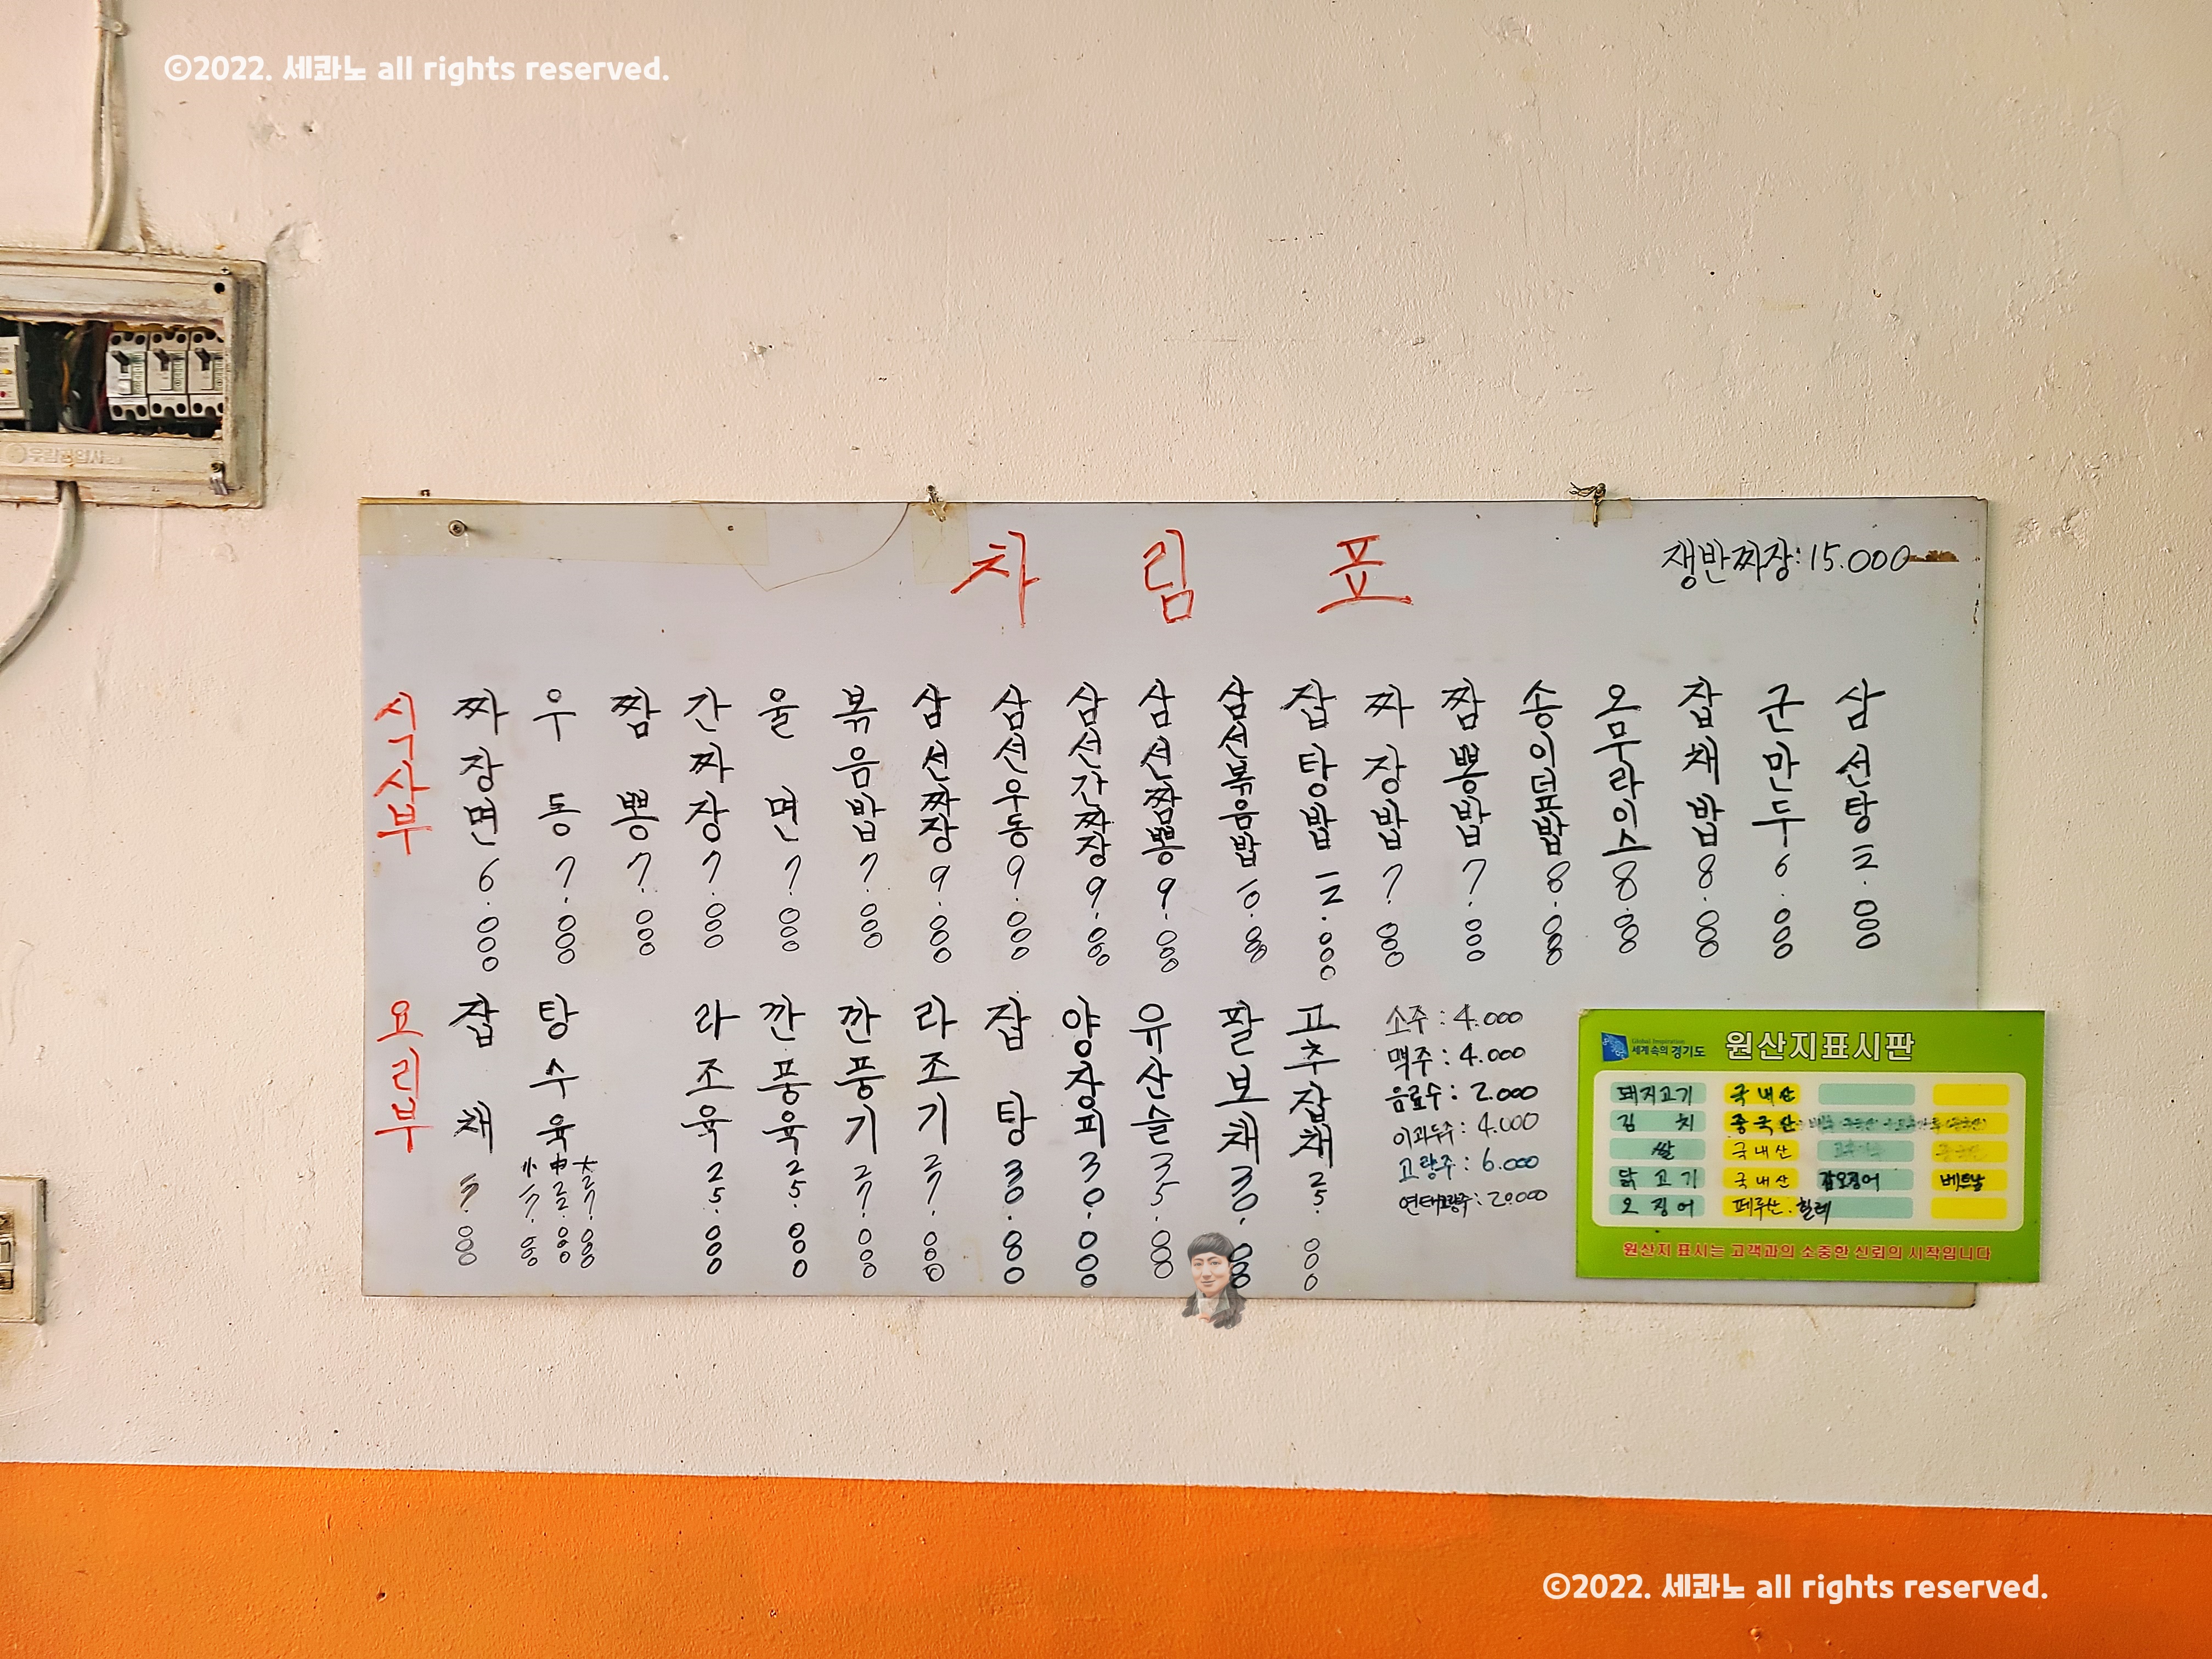 ©2022. 세콰노 all rights reserved.
차 림 표
쟁반짜장:15.000
식사부
짜장면 6.000
우동 7.000
짬뽕 7.000
간짜장 7.000
울면 7.000
볶음밥 7.000
삼선짜장 9.000
삼선우동 9.000
삼선간짜장 9.000
삼선짬뽕 9.000
삼선볶음밥 10.000
잡탕밥 12.000
짜장밥 7.000
짬뽕밥 7.000
송이덮밥 8.000
오무라이스 8.000
잡채밥 8.000
군만두 6.000
삼선탕 12.000
요리부
잡채 17.000
탕수육
小 17.000
中 22.000
大 27.000
라조육 25.000
깐풍육 25.000
깐풍기 27.000
라조기 27.000
잡탕 30.000
양장피 30.000
유산슬 35.000
팔보채 30.000
고추잡채 25.000
소주 : 4.000
맥주 : 4.000
음료수 : 2.000
이과두주 : 4.000
고량주 : 6.000
연태고량주 : 20.000
Global Inspiration
세계속의 경기도
원산지표시판
돼지고기 국내산
김 치 중국산
쌀 국내산
닭고기 국내산 갑오징어 베트남
오징어 페루산. 칠레
원산지 표시는 고객과의 소중한 신뢰의 시작입니다
©2022. 세콰노 all rights reserved.